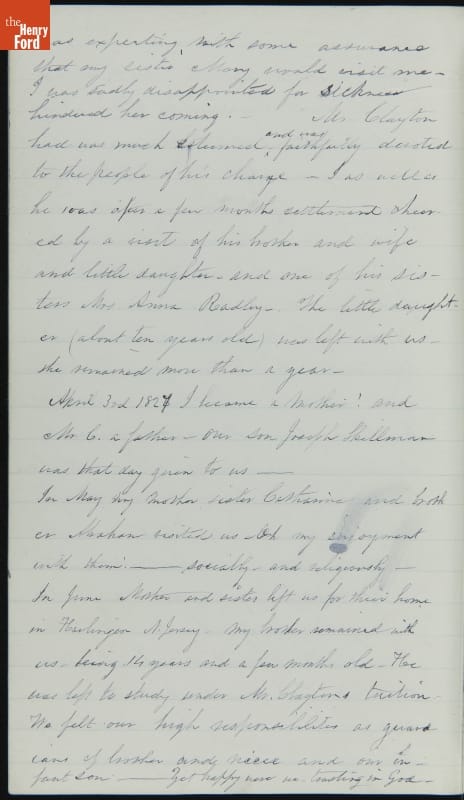 the
Henry
Ford
was expecting, with some assurance
that my sister Mary would visit me -
I was sadly disappointed for sickness
hindered her coming. - Mr. Clayton
had was much esteemed, and was faithfully devoted
to the people of his charge - I as well as
he was after a few months settlement cheer-
ed by a visit of his brother and wife
and little daughter - and one of his sis-
ters Mrs Anna Radley. The little daught-
er (about ten years old) was left with us -
she remained more than a year -
April 3rd 1827 I became a Mother! and
Mr C. a father - our son Joseph Skillman
was that day given to us -
In May my mother sister Catharine and broth
er Abraham visited us Oh my enjoyment
with them. - socially - and religiously -
In June Mother and sister left us for their home
in Harlingen N. Jersey - My brother remained with
us - being 14 years and a few months old - He
was left to study under Mr. Claytons tuition.
We felt our high responsibilities as guard
ians of brother and niece and our in-
fant son - Yet happy were we trusting in God -